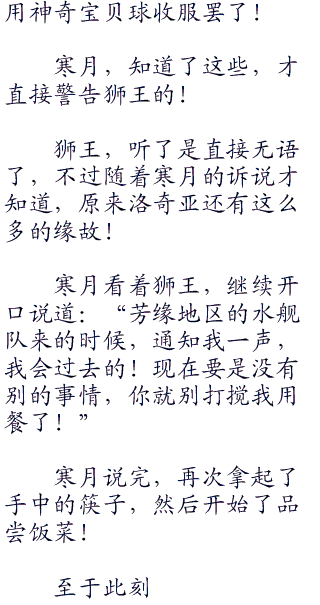 用神奇宝贝球收服罢了！
寒月，知道了这些，才
直接警告狮王的！
狮王，听了是直接无语
了，不过随着寒月的诉说才
知道，原来洛奇亚还有这么
多的缘故！
寒月看着狮王，继续开
口说道：“芳缘地区的水舰
队来的时候，通知我一声，
我会过去的！现在要是没有
别的事情，你就别打搅我用
餐了！”
寒月说完，再次拿起了
手中的筷子，然后开始了品
尝饭菜！
至于此刻